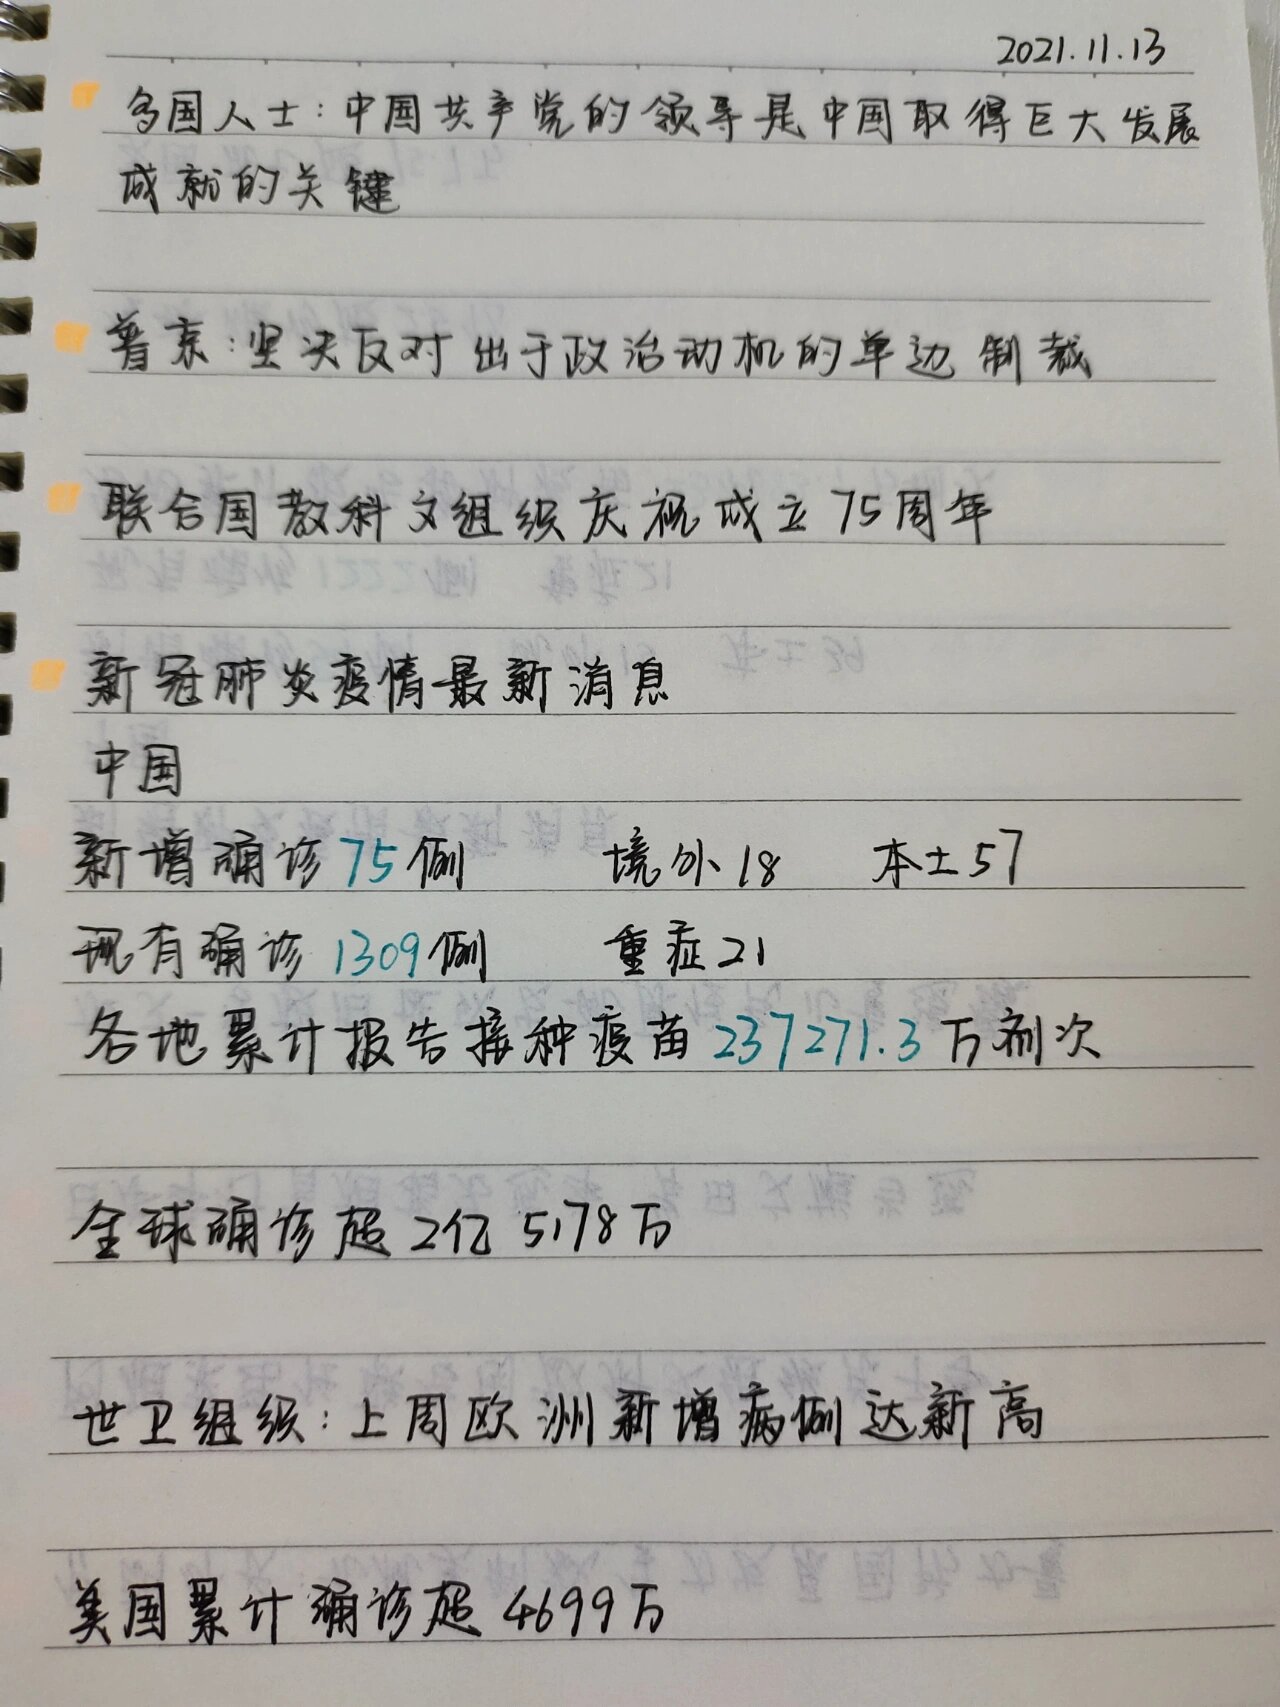 2021.11.13
多国人士:中国共产党的领导是中国取得巨大发展
成就的关键
普京:坚决反对出于政治动机的单边制裁
联合国教科文组织庆祝成立75周年
新冠肺炎疫情最新消息
中国
新增确诊75例 境外18 本土57
现有确诊1309例 重症21
各地累计报告接种疫苗237271.3万剂次
全球确诊超2亿5178万
世卫组织:上周欧洲新增病例达新高
美国累计确诊超4699万